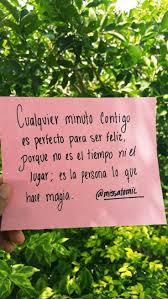 Cualquier minuto contigo
es perfecto para ser feliz,
porque no es el tiempo ni el
lugar; es la persona lo que
hace magia.
@missatomic